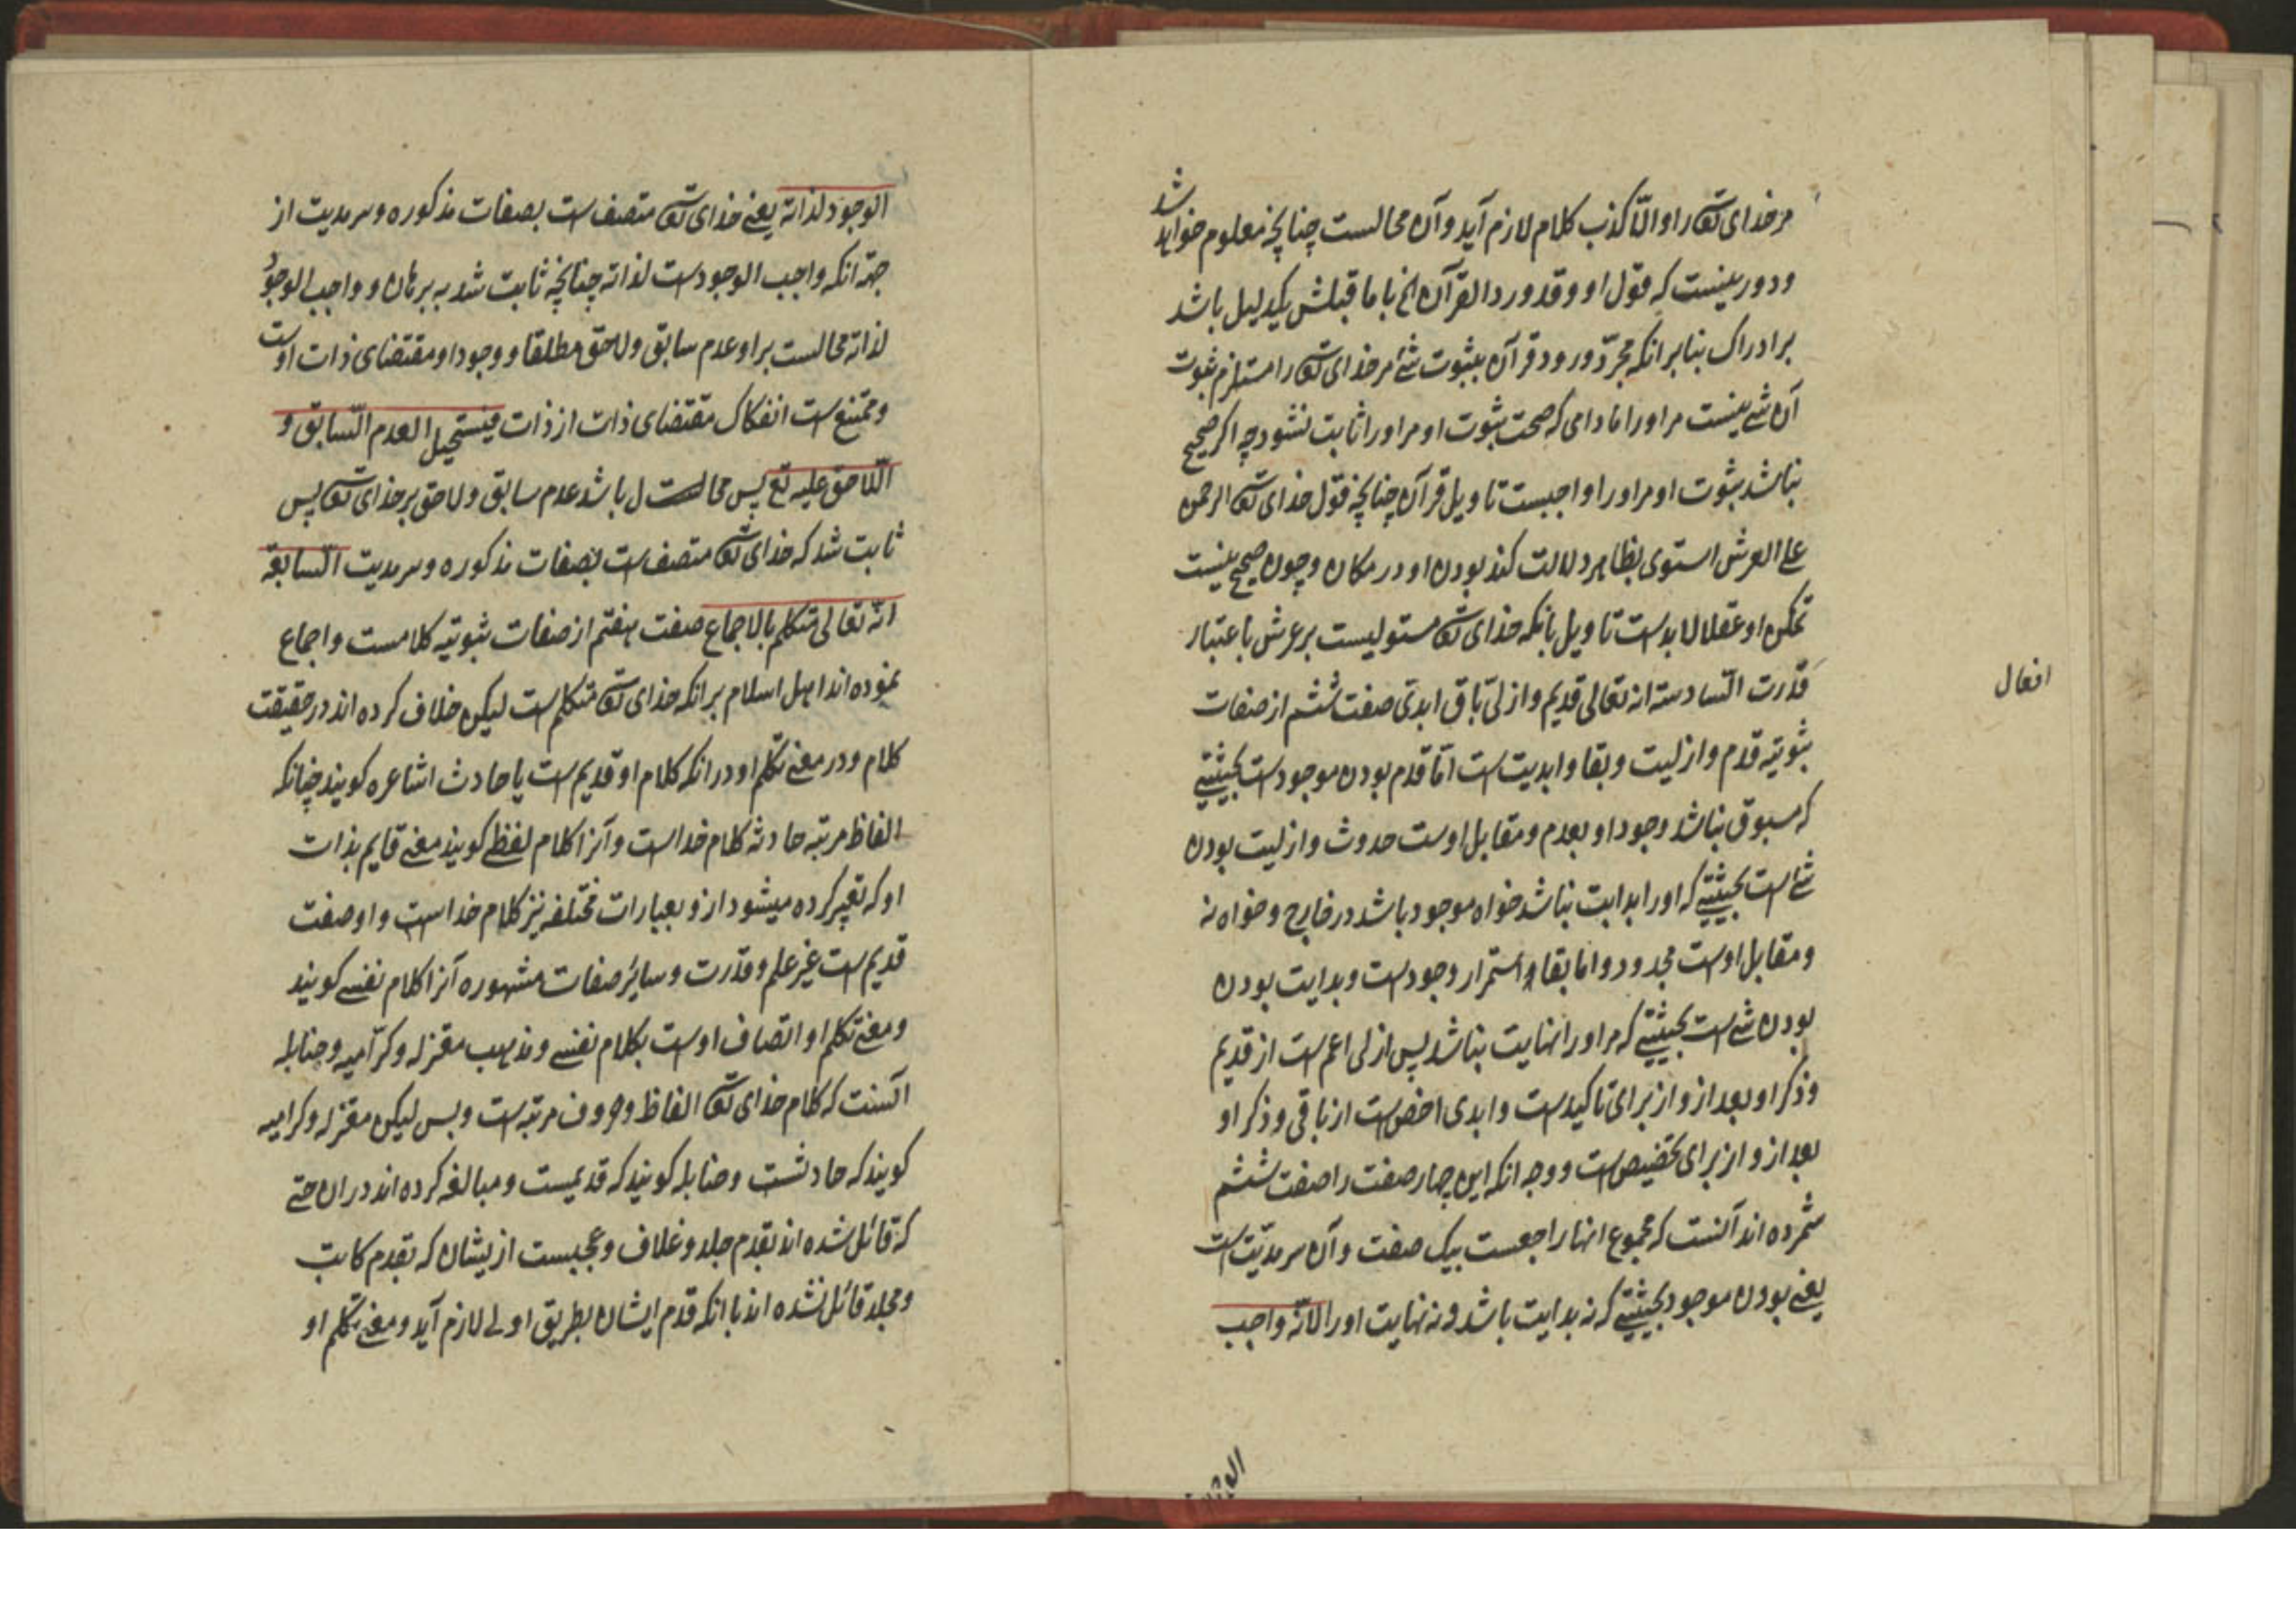 مر خدای تعه را و الّا کذب کلام لازم آید و آن محالست چنانچه معلوم خواهد شد
و دور نیست که قول او و قد ورد القرآن الخ با ما قبلش یکدلیل باشد
بر ادراک بنابر انکه مجرّد ورود قرآن بثبوت شئ مر خدای تعه را مستلزم ثبوت
آن شئ نیست مر او را مادامی که صحت ثبوت او مر او را ثابت نشود چه اکر صحیح
نباشد ثبوت او مر او را واجبست تاویل قرآن چنانچه قول خدای تعه الرحمن
علی العرش استوی بظاهر دلالت کند بودن او در مکان و چون صحیح نیست
تمکن او عقلا لابدست تاویل بانکه خدای تعه مستولیست بر عرش باعتبار
قدرت السّادسة انه تعالی قدیم و ازلیّ باق ابدیّ صفت ششم از صفات
ثبوتیه قدم و ازلیت و بقا و ابدیت است امّا قدم بودن موجودست بحیثیتی
که مسبوق نباشد وجود او بعدم و مقابل اوست حدوث و ازلیت بودن
شئ است بحیثیتی که او را بدایت نباشد خواه موجود باشد در خارج و خواه نه
و مقابل اوست مجدود و اما بقا و استمرار وجودست و بدایت بودن
بودن شئ است بحیثیتی که مر او را نهایت نباشد پس ازلی اعم است از قدیم
و ذکر او بعد ازو از برای تاکیدست و ابدی اخص است از باقی و ذکر او
بعد ازو از برای تخصیص است و وجه انکه این چهار صفت را صفت ششم
شمرده اند آنست که مجموع انها راجعست بیک صفت و آن سرمدیّت است
یعنی بودن موجود بحیثیتی که نه بدایت باشد و نه نهایت او را لانّه واجب
افعال
الوجود لذاته یعنی خدای تعه متصف است بصفات مذکوره و سرمدیت از
جهة انکه واجب الوجودست لذاته چنانچه ثابت شد به برهان و واجب الوجود
لذاته محالست بر او عدم سابق و لاحق مطلقا و وجود او مقتضای ذات اوست
و ممتنع است انفکاک مقتضای ذات از ذات فیستحیل العدم السّابق و
اللّاحق علیه تع پس محال باشد عدم سابق و لاحق بر خدای تعه پس
ثابت شد که خدای تعه متصف است بصفات مذکوره و سرمدیت السّابعة
انّه تعالی متکلم بالاجماع صفت هفتم از صفات ثبوتیه کلامست و اجماع
نموده اند اهل اسلام بر انکه خدای تعه متکلم است لیکن خلاف کرده اند در حقیقت
کلام و در معنی تکلم او در انکه کلام او قدیم است یا حادث اشاعره کویند چنانکه
الفاظ مرتبه حادثه کلام خداست و آنرا کلام لفظی کویند معنی قایم بذات
او که تعبیر کرده میشود ازو بعبارات مختلفه نیز کلام خداست و او صفت
قدیم است غیر علم و قدرت و سایر صفات مشهوره آنرا کلام نفسی کویند
و معنی تکلم او اتصاف اوست بکلام نفسی و مذهب معتزله و کرّامیه و حنابله
آنست که کلام خدای تعه الفاظ و حروف مرتبه است و بس لیکن معتزله و کرامیه
کویند که حادثست و حنابله کویند که قدیمست و مبالغه کرده اند در ان حتی
که قائل شده اند بقدم جلد و غلاف و عجبست ازیشان که بقدم کاتب
و مجلد قائل نشده اند با انکه قدم ایشان بطریق اولی لازم آید و معنی تکلم او